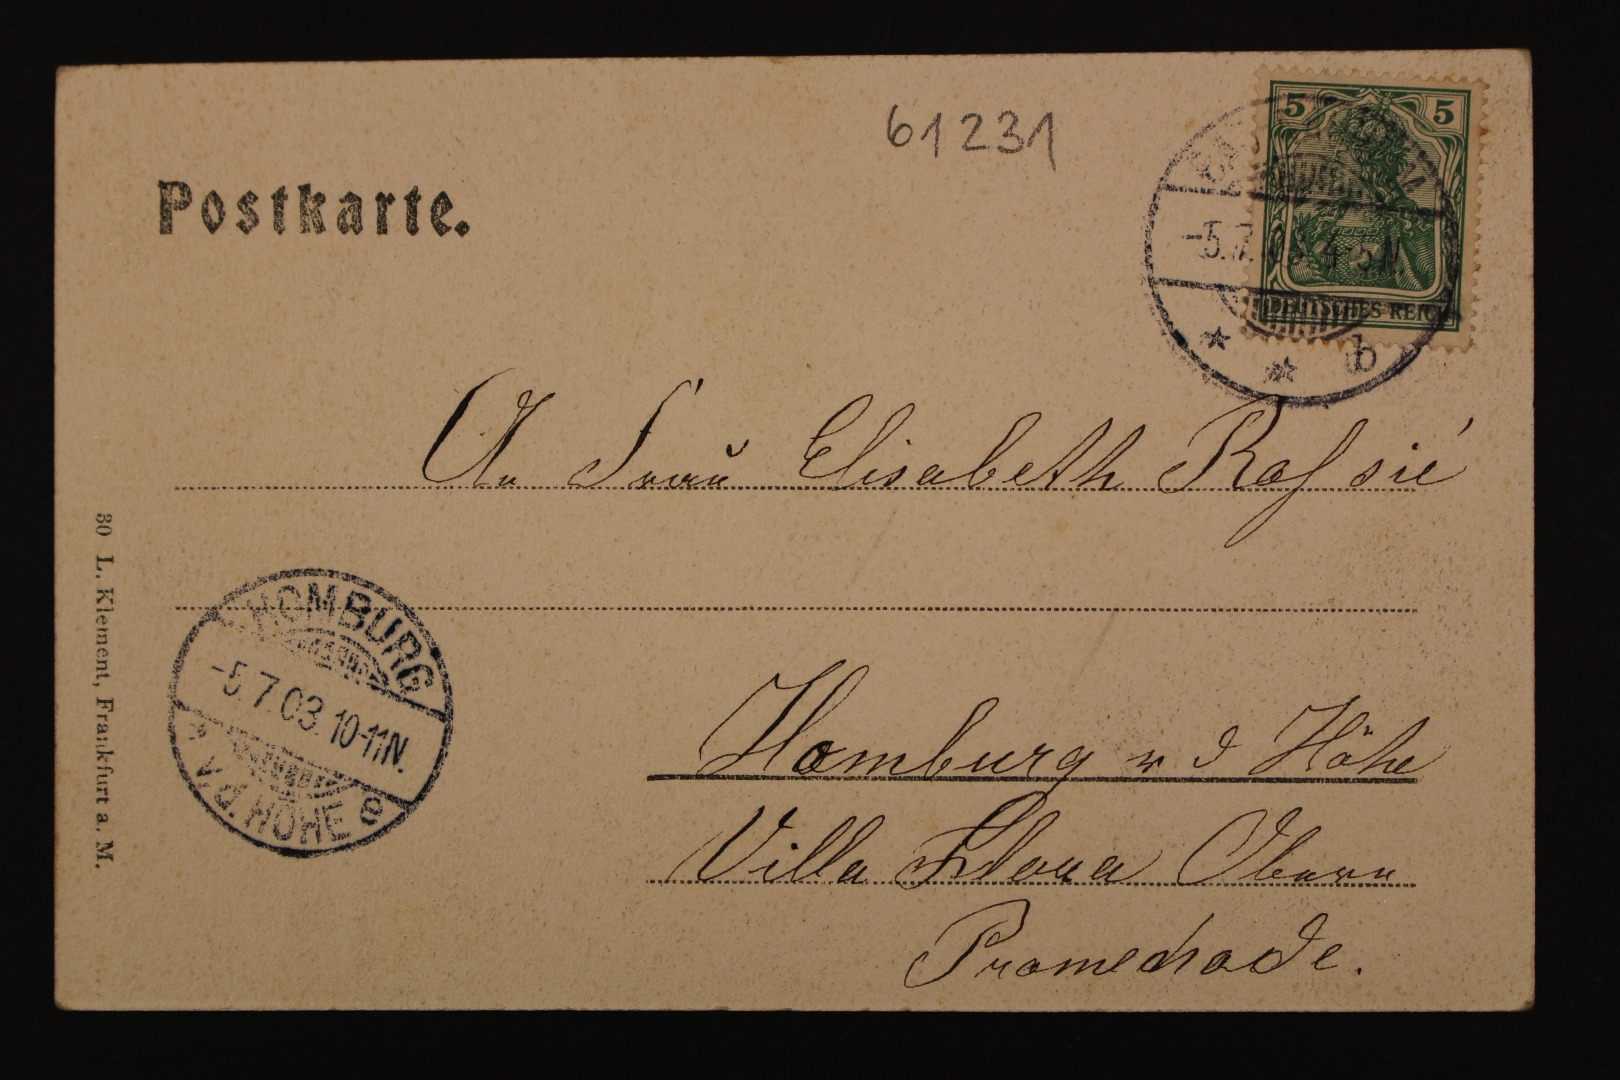 61231
5 5
DEUTSCHES REICH
-5.7. 4-5N
* * b
Postkarte.
An Frau Elisabeth
Homburg v d Höhe
Villa
Promenade.
HOMBURG
-5.7.03.10-11N.
* v.d. HÖHE e
30 L. Klement, Frankfurt a. M.